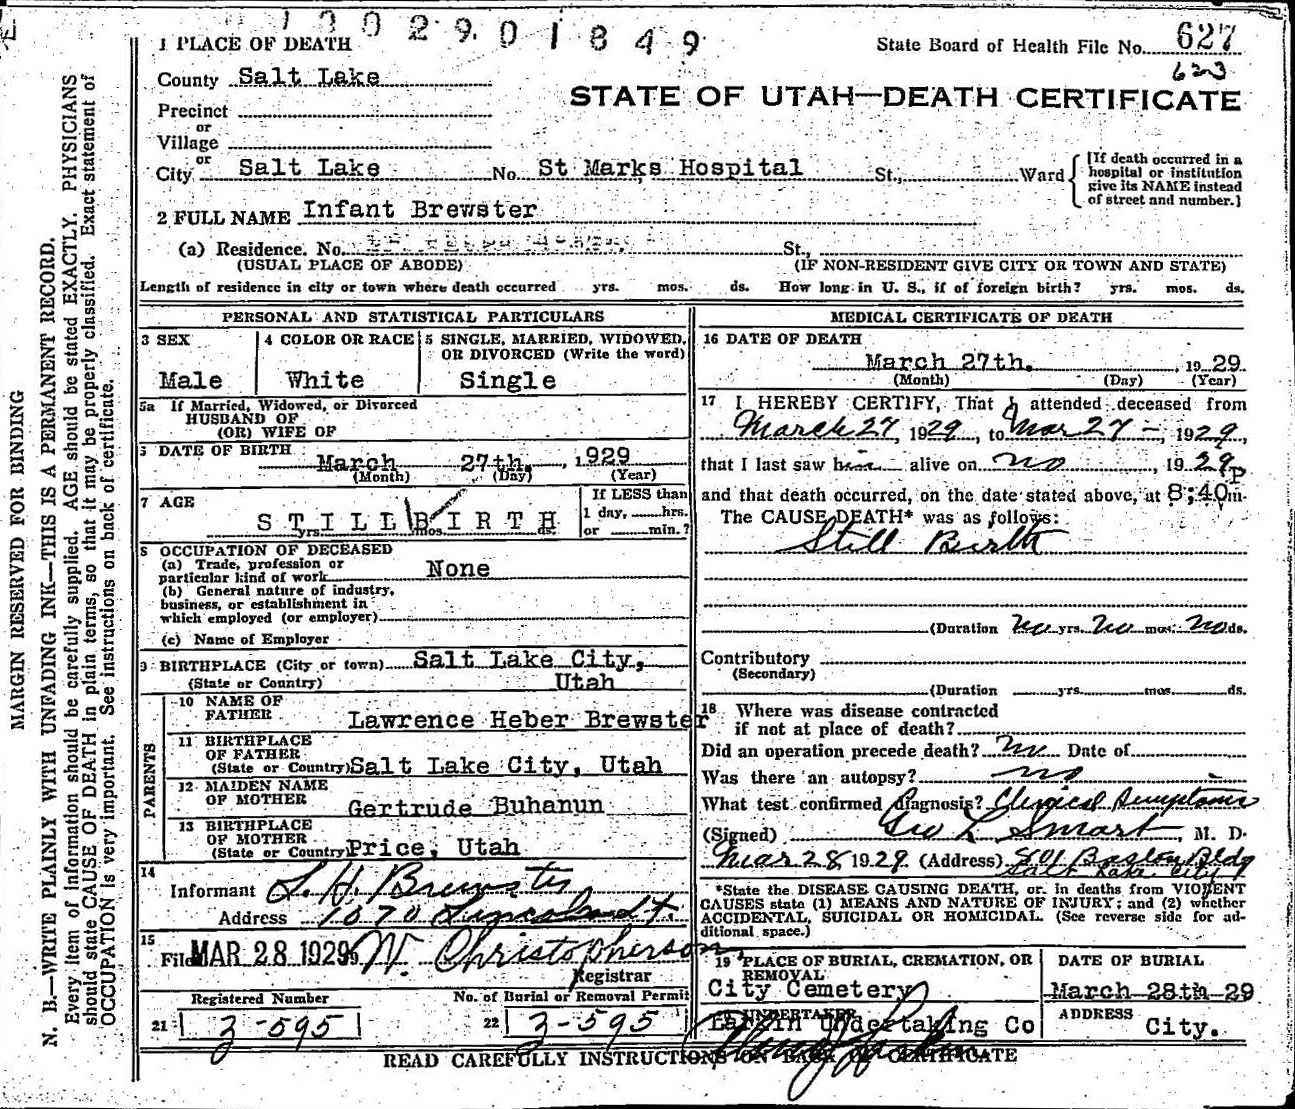 1302901849
1 PLACE OF DEATH
State Board of Health File No. 627
623
County Salt Lake
STATE OF UTAH—DEATH CERTIFICATE
Precinct
or
Village
or
City Salt Lake No. St Marks Hospital St., Ward
[If death occurred in a
hospital or institution
give its NAME instead
of street and number.]
2 FULL NAME Infant Brewster
(a) Residence. No. St.,
(USUAL PLACE OF ABODE) (IF NON-RESIDENT GIVE CITY OR TOWN AND STATE)
Length of residence in city or town where death occurred yrs. mos. ds. How long in U. S., if of foreign birth? yrs. mos. ds.
PERSONAL AND STATISTICAL PARTICULARS
3 SEX 4 COLOR OR RACE 5 SINGLE, MARRIED, WIDOWED,
OR DIVORCED (Write the word)
Male White Single
5a If Married, Widowed, or Divorced
HUSBAND OF
(OR) WIFE OF
6 DATE OF BIRTH
March 27th. , 1929
(Month) (Day) (Year)
7 AGE If LESS than
1 day, hrs.
or min.?
STILL BIRTH
yrs. mos. ds.
8 OCCUPATION OF DECEASED
(a) Trade, profession or
particular kind of work None
(b) General nature of industry,
business, or establishment in
which employed (or employer)
(c) Name of Employer
9 BIRTHPLACE (City or town) Salt Lake City,
(State or Country) Utah
PARENTS
10 NAME OF
FATHER Lawrence Heber Brewster
11 BIRTHPLACE
OF FATHER
(State or Country) Salt Lake City, Utah
12 MAIDEN NAME
OF MOTHER Gertrude Buhanun
13 BIRTHPLACE
OF MOTHER
(State or Country) Price, Utah
14
Informant L. H. Brewster
Address 1070 Lincoln St.
15
Filed MAR 28 1929 W. Christopherson
Registrar
Registered Number No. of Burial or Removal Permit
21 3-595 22 3-595
MEDICAL CERTIFICATE OF DEATH
16 DATE OF DEATH
March 27th. , 1929
(Month) (Day) (Year)
17 I HEREBY CERTIFY, That I attended deceased from
March 27, 1929, to Mar 27-, 1929,
that I last saw him alive on no, 1929
and that death occurred, on the date stated above, at 8:40 P m.
The CAUSE DEATH* was as follows:
Still Birth
(Duration no yrs. no mos. no ds.
Contributory
(Secondary)
(Duration yrs. mos. ds.
18 Where was disease contracted
if not at place of death?
Did an operation precede death? No Date of
Was there an autopsy? no
What test confirmed diagnosis? Clinical Symptoms
(Signed) Geo L Smart, M. D.
Mar 28 1929. (Address) 801 Boston Bldg
Salt Lake City
*State the DISEASE CAUSING DEATH, or. in deaths from VIOLENT
CAUSES state (1) MEANS AND NATURE OF INJURY: and (2) whether
ACCIDENTAL, SUICIDAL OR HOMICIDAL. (See reverse side for ad-
ditional space.)
19 PLACE OF BURIAL, CREMATION, OR
REMOVAL DATE OF BURIAL
City Cemetery March 28th 29
UNDERTAKER ADDRESS
Larkin Undertaking Co City.
READ CAREFULLY INSTRUCTIONS ON BACK OF CERTIFICATE
MARGIN RESERVED FOR BINDING
N. B.—WRITE PLAINLY WITH UNFADING INK—THIS IS A PERMANENT RECORD.
Every item of information should be carefully supplied. AGE should be stated EXACTLY. PHYSICIANS
should state CAUSE OF DEATH in plain terms, so that it may be properly classified. Exact statement of
OCCUPATION is very important. See instructions on back of certificate.